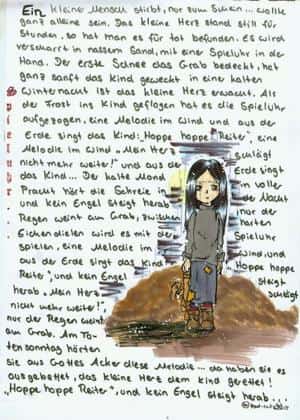 Ein kleine Mensch stirbt, nur zum Schein... wollte
ganz alleine sein. Das kleine Herz stand still für
Stunden, so hat man es für tot befunden. Es wird
verscharrt in nassem Sand, mit einer Spieluhr in der
Hand. Der erste Schnee das Grab bedeckt, hat
ganz sanft das Kind geweckt in einer kalten
Winternacht ist das kleine Herz erwacht. Als
der Frost ins Kind geflogen hat es die Spieluhr
aufgezogen, eine Melodie im Wind und aus der
Erde singt das Kind: „Hoppe hoppe Reiter", eine
Melodie im Wind „Mein Herz schlägt
nicht mehr weiter!" und aus der Erde singt
das Kind... Der kalte Mond in voller
Pracht hört die Schreie in der Nacht
und kein Engel steigt herab nur der
Regen weint am Grab, zwischen harten
Eichendielen wird es mit der Spieluhr
spielen, eine Melodie im Wind, und
aus der Erde singt das Kind „Hoppe hoppe
Reiter", und kein Engel steigt
herab „Mein Herz schlägt
nicht mehr weiter!",
nur der Regen weint
am Grab. Am To-
tensonntag hörten
sie aus Gottes Acker diese Melodie... da haben sie es
ausgebettet, das kleine Herz dem kind gerettet!
„Hoppe hoppe Reiter", und kein Engel steigt herab...
Spieluhr